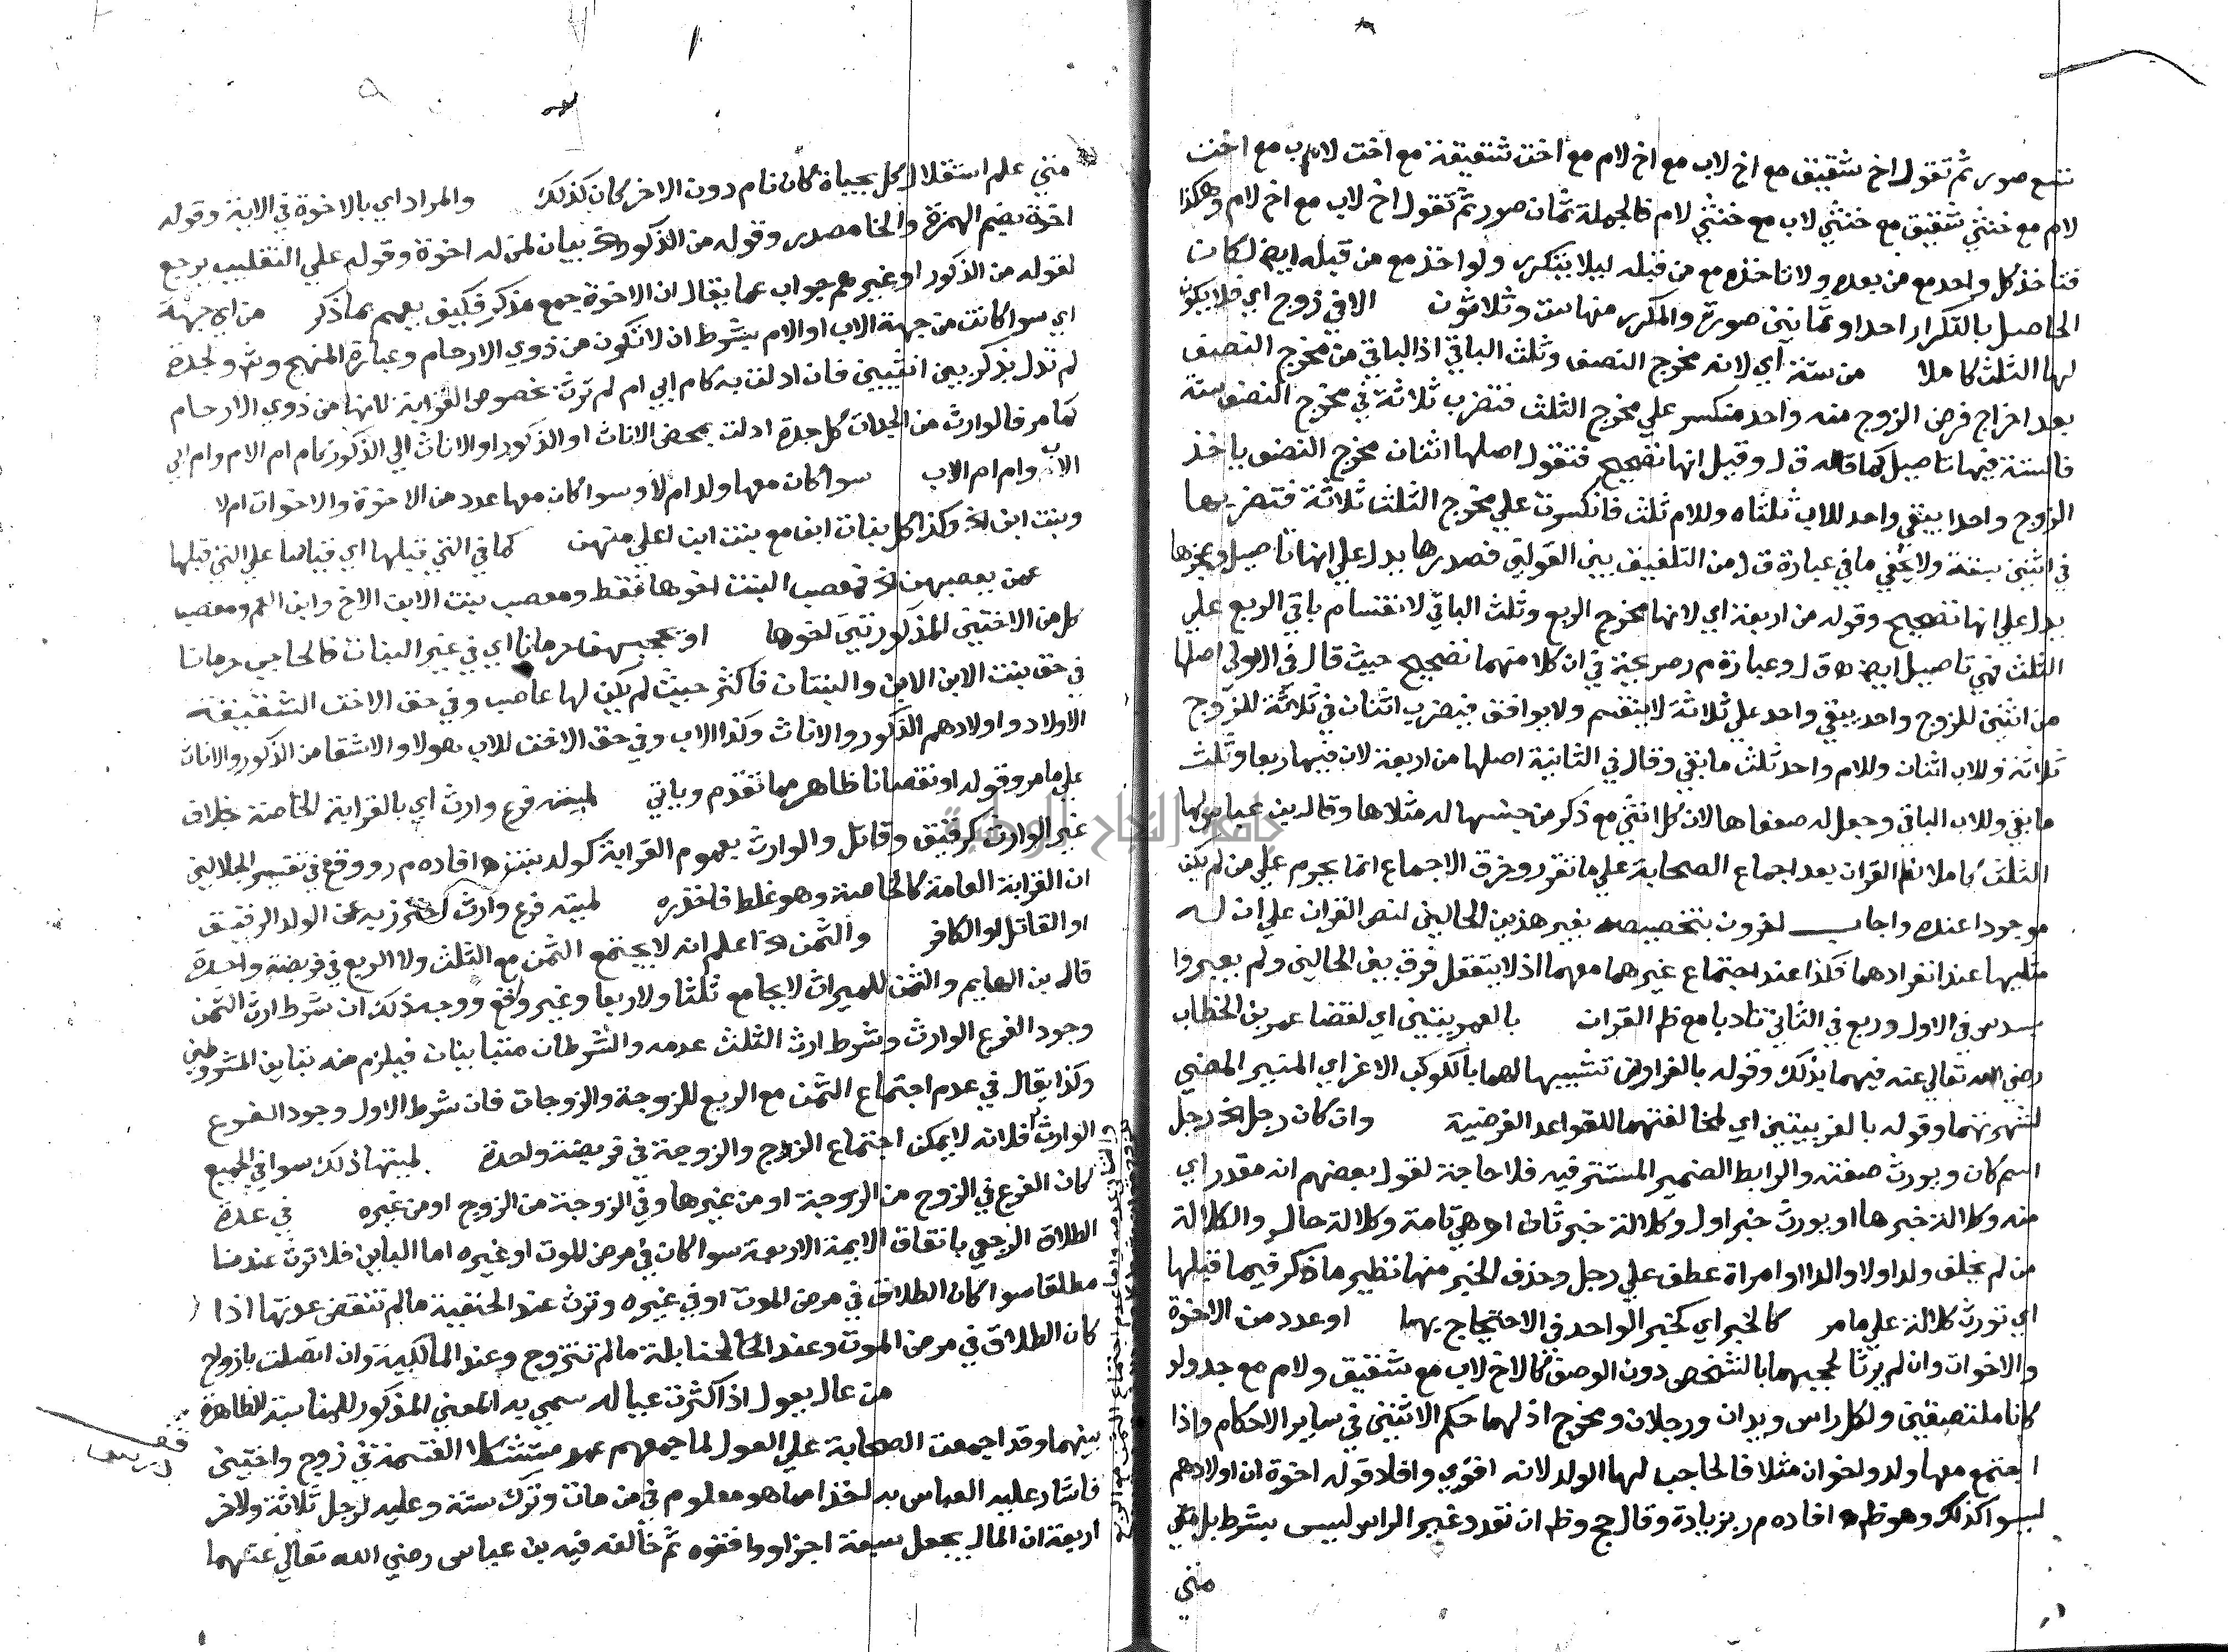 تسع صور ثم تقول اخ شقيق مع اخ لاب مع اخ لام مع اخت شقيقة مع اخت لاب مع اخت
لام مع خنثي شقيق مع خنثي لاب مع خنثي لام فالجملة ثمان صور ثم تقول اخ لاب مع اخ لام وهكذا
فتاخذ كل واحد مع من بعده ولا تاخذه مع من قبله ليلا يتكرر ولو اخذ مع من قبله ايضا لكان
الحاصل بالتكرار احدا وثمانين صورة والمكرر منها ست وثلاثون الا في زوج اي فلا يكون
لها الثلث كاملا من ستة اي لانه مخرج النصف وثلث الباقي اذ الباقي من مخرج النصف
بعد اخراج فرض الزوج منه واحد منكسر علي مخرج الثلث فتضرب ثلاثة في مخرج النصف ستة
فالستة فيها تاصيل كما قاله ق ل وقيل انها تصحيح فتقول اصلها اثنان مخرج النصف ياخذ
الزوج واحدا يبقي واحد للاب ثلثاه وللام ثلث فانكسرت علي مخرج الثلث ثلاثة فتضربها
في اثنين بستة ولا يخفي ما في عبارة ق ل من التلفيق بين القولين فصدرها يدل علي انها تاصيل وعجزها
يدل علي انها تصحيح وقوله من اربعة اي لانها مخرج الربع وثلث الباقي لانقسام باقي الربع علي
الثلث فهي تاصيل ايضا ه ق ل وعبارة م ر صريحة في ان كلا منهما تصحيح حيث قال في الاولي اصلها
من اثنين للزوج واحد يبقي واحد علي ثلاثة لا ينقسم ولا يوافق فيضرب اثنان في ثلاثة للزوج
ثلاثة وللاب اثنان وللام واحد ثلث ما بقي وقال في الثانية اصلها من اربعة لان فيها ربعا وثلث
ما بقي وللاب الباقي وجعل له ضعفاها لان كل انثي مع ذكر من جنسها له مثلاها وقال بن عباس لها
الثلث كاملا لظ القران بعد اجماع الصحابة علي ما تقرر وخرق الاجماع انما يحرم علي من لم يكن
موجودا عنده واجاب الاخرون بتخصيصه بغير هذين الحالين لنص القران علي ان له
مثليها عند انفرادهما فكذا عند اجتماع غيرهما معهما اذ لا يتعقل فرق بين الحالين ولم يعبروا
بسدس في الاول وربع في الثاني تادبا مع ظ القران بالعمريتين اي لقضا عمر بن الخطاب
رضي الله تعالي عنه فيهما بذلك وقوله بالغراوين تشبيها لهما بالكوكب الاغر اي المنير المضي
لشهرتهما وقوله بالغريبتين اي لمخالفتهما للقواعد الفرضية وان كان رجل الخ رجل
اسم كان ويورث صفته والرابط الضمير المستتر فيه فلا حاجة لقول بعضهم انه مقدر اي
منه وكلالة خبرها او يورث خبر اول وكلالة خبر ثان او هي تامة وكلالة حال والكلالة
من لم يخلف ولدا ولا والدا او امراة عطف علي رجل وحذف الخبر منها نظير ما ذكر فيما قبلها
اي تورث كلالة علي ما مر كالخبر اي كخبر الواحد في الاحتجاج بها او عدد من الاخوة
والاخوات وان لم يرثا لحجبهما بالشخص دون الوصف كالاخ لاب مع شقيق ولام مع جد ولو
كانا ملتصقين ولكل راس ويدان ورجلان ومخرج اذ لهما حكم الاثنين في ساير الاحكام واذا
اجتمع معها ولد واخوان مثلا فالحاجب لها الولد لانه اقوي وافاد قوله اخوة ان اولادهم
ليسوا كذلك وهو ظ ه افاده م ر بزيادة وقال حج وظ ان تعدد غير الراس ليس بشرط بل متي
متي
متي علم استقلال كل بحياة كان نام دون الاخر كان كذلك والمراد اي بالاخوة في الاية وقوله
اخوة بضم الهمزة والخا مصدر وقوله من الذكور الخ بيان لمن له اخوة وقوله علي التغليب يرجع
لقوله من الذكور او غيرهم جواب عما يقال ان الاخوة جمع مذكر فكيف يعمم بما ذكر من اي جهة
اي سوا كانت من جهة الاب او الام بشرط ان لا تكون من ذوي الارحام وعبارة المنهج وشر ولجدة
لم تدل بذكر بين انثيين فان ادلت به كام ابي ام لم ترث بخصوص القرابة لانها من ذوي الارحام
كما مر فالوارث من الجدات كل جدة ادلت بمحض الاناث او الذكور او الاناث الي الذكور كام ام الام وام ابي
الاب وام ام الاب سوا كان معها ولد ام لا وسوا كان معها عدد من الاخوة والاخوات ام لا
وبنت ابن الخ وكذا كل بنات ابن مع بنت ابن اعلي منهن كما في التي قبلها اي قياسا علي التي قبلها
عمن يعصبهن الخ فمعصب البنت اخوها فقط ومعصب بنت الابن الاخ وابن العم ومعصب
كل من الاختين المذكورتين اخوها او يحجبهن حرمانا اي في غير البنات فالحاجب حرمانا
في حق بنت الابن الابن والبنتان فاكثر حيث لم يكن لها عاصب وفي حق الاخت الشقيقة
الاولاد واولادهم الذكور والاناث وكذا الاب وفي حق الاخت للاب هولا والاشقا من الذكور والاناث
علي ما مر وقوله او نقصانا ظاهر مما تقدم وياتي لميته فرع وارث اي بالقرابة الخاصة خلاف
غير الوارث كرقيق وقاتل والوارث بعموم القرابة كولد بنت ه افاده م ر ووقع في تفسير الجلالين
ان القرابة العامة كالخاصة وهو غلط فاحذره لميته فرع وارث احترز به عن الولد الرقيق
او القاتل او الكافر والثمن الخ اعلم انه لا يجتمع الثمن مع الثلث ولا الربع في فريضة واحدة
قال بن الهايم والثمن للميراث لا يجامع ثلثا ولا ربعا وغير واقع ووجه ذلك ان شرط ارث الثمن
وجود الفرع الوارث وشرط ارث الثلث عدمه والشرطان متباينان فيلزم منه تباين المشروطين
وكذا يقال في عدم اجتماع الثمن مع الربع للزوجة والزوجات فان شرط الاول وجود الفرع
الوارث فلانه لا يمكن اجتماع الزوج والزوجة في فريضة واحدة لميتها ذلك سوا في الجميع
كان الفرع في الزوج من الزوجة او من غيرها وفي الزوجة من الزوج او من غيره في عدة
الطلاق الرجعي باتفاق الايمة الاربعة سوا كان في مرض الموت او غيره اما الباين فلا ترث عندنا
مطلقا سوا كان الطلاق في مرض الموت او في غيره وترث عند الحنفية ما لم تنقض عدتها اذا
كان الطلاق في مرض الموت وعند الحنابلة ما لم تتزوج وعند المالكية وان اتصلت بازواج
من عال يعول اذا كثرت عياله سمي به المعني المذكور للمناسبة الظاهرة
بينهما وقد اجمعت الصحابة علي العول لما جمعهم عمر مستشكلا القسمة في زوج واختين
فاشار عليه العباس به اخذا مما هو معلوم في من مات وترك ستة وعليه لرجل ثلاثة ولاخر
اربعة ان المال يجعل سبعة اجزا ووافقوه ثم خالفه فيه بن عباس رضي الله تعالي عنهما
جامعة النجاح الوطنية